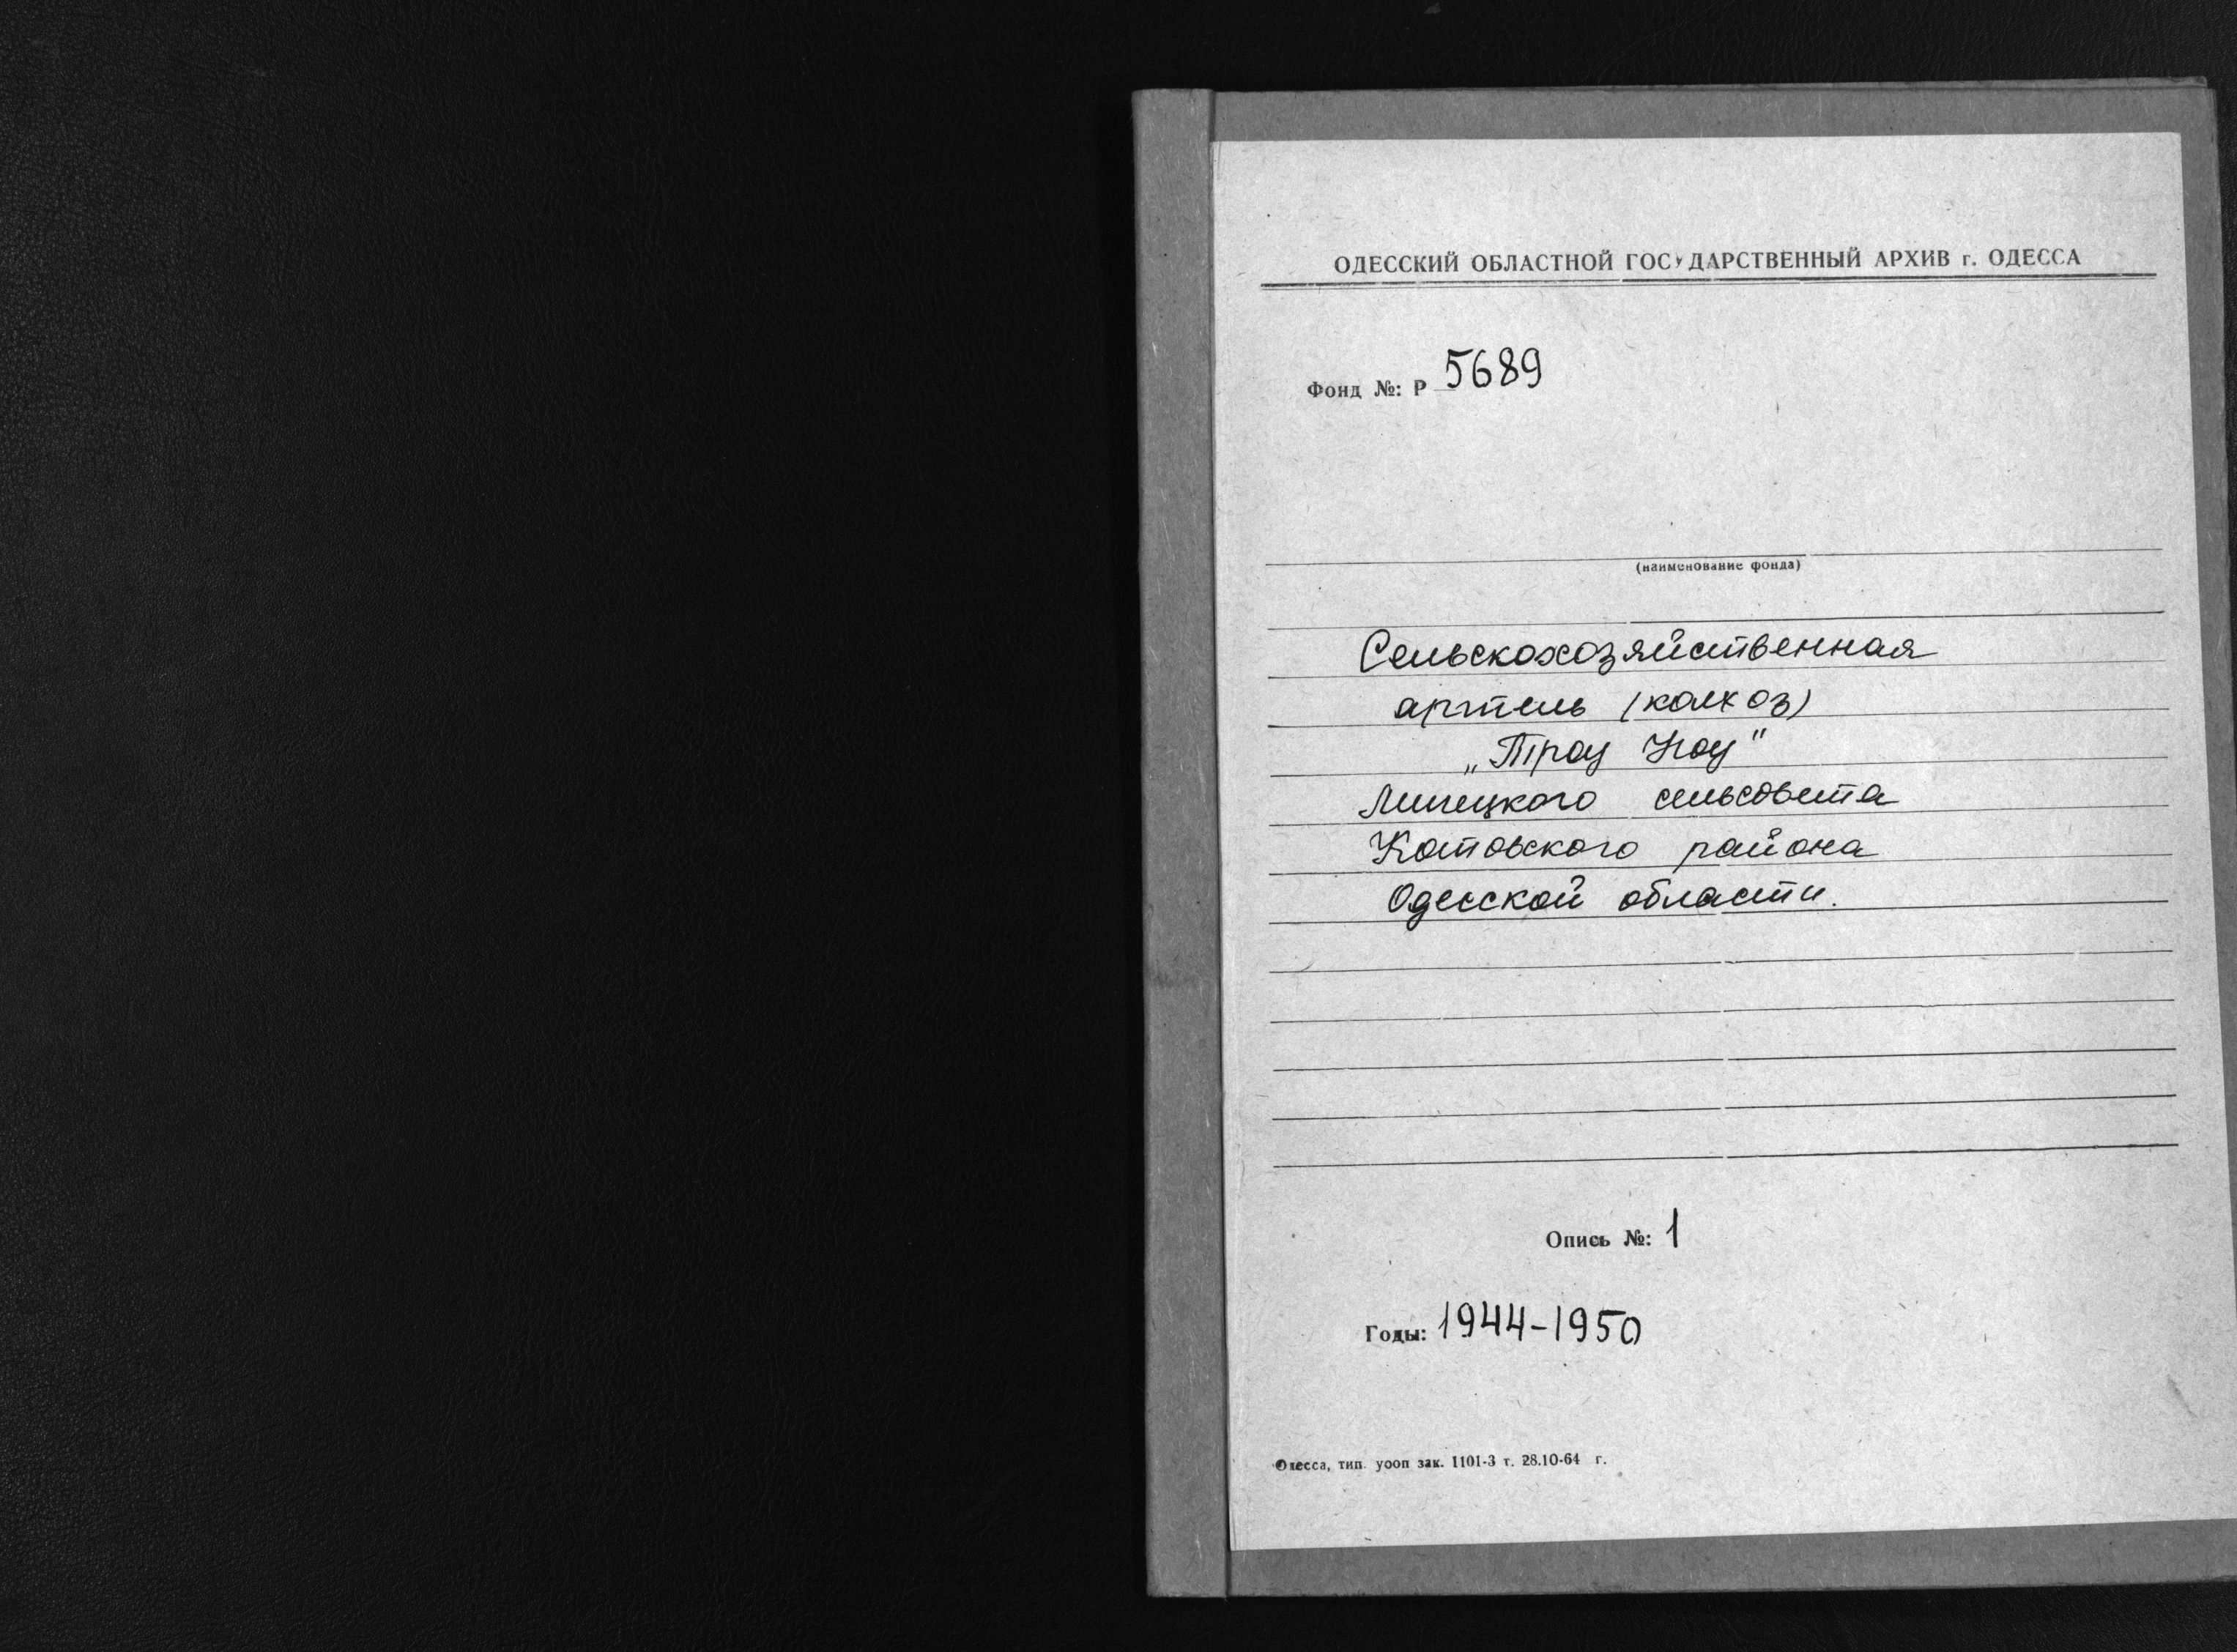 ОДЕССКИЙ ОБЛАСТНОЙ ГОСУДАРСТВЕННЫЙ АРХИВ г. ОДЕССА
Фонд №: Р 5689
(наименование фонда)
Сельскохозяйственная
артель (колхоз)
„Трау Ноу"
Липецкого сельсовета
Котовского района
Одесской области.
Опись №: 1
Годы: 1944-1950
Одесса, тип. уооп зак. 1101-3 т. 28.10-64 г.